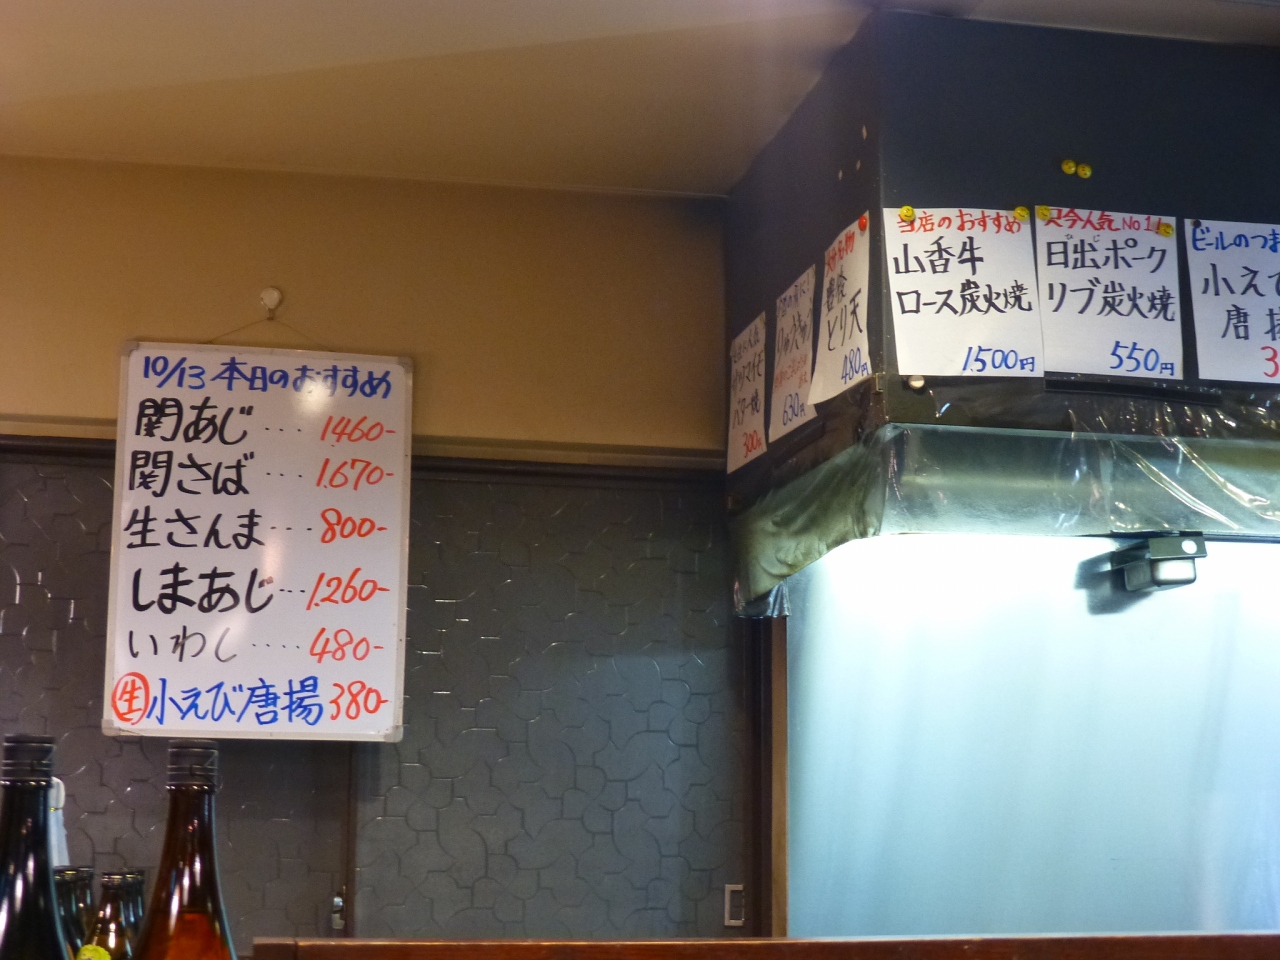 10/13 本日のおすすめ
関あじ ···· 1.460-
関さば ···· 1.670-
生さんま ···· 800-
しまあじ ··· 1.260-
いわし ····· 480-
生 小えび唐揚 380-
バター焼
300円
りゅうきゅう
630円
とり天
480円
当店のおすすめ
山香牛
ロース炭火焼
1.500円
只今人気No1!
日出ポーク
ひじ
リブ炭火焼
550円
ビールのつま
小えび
唐揚
3